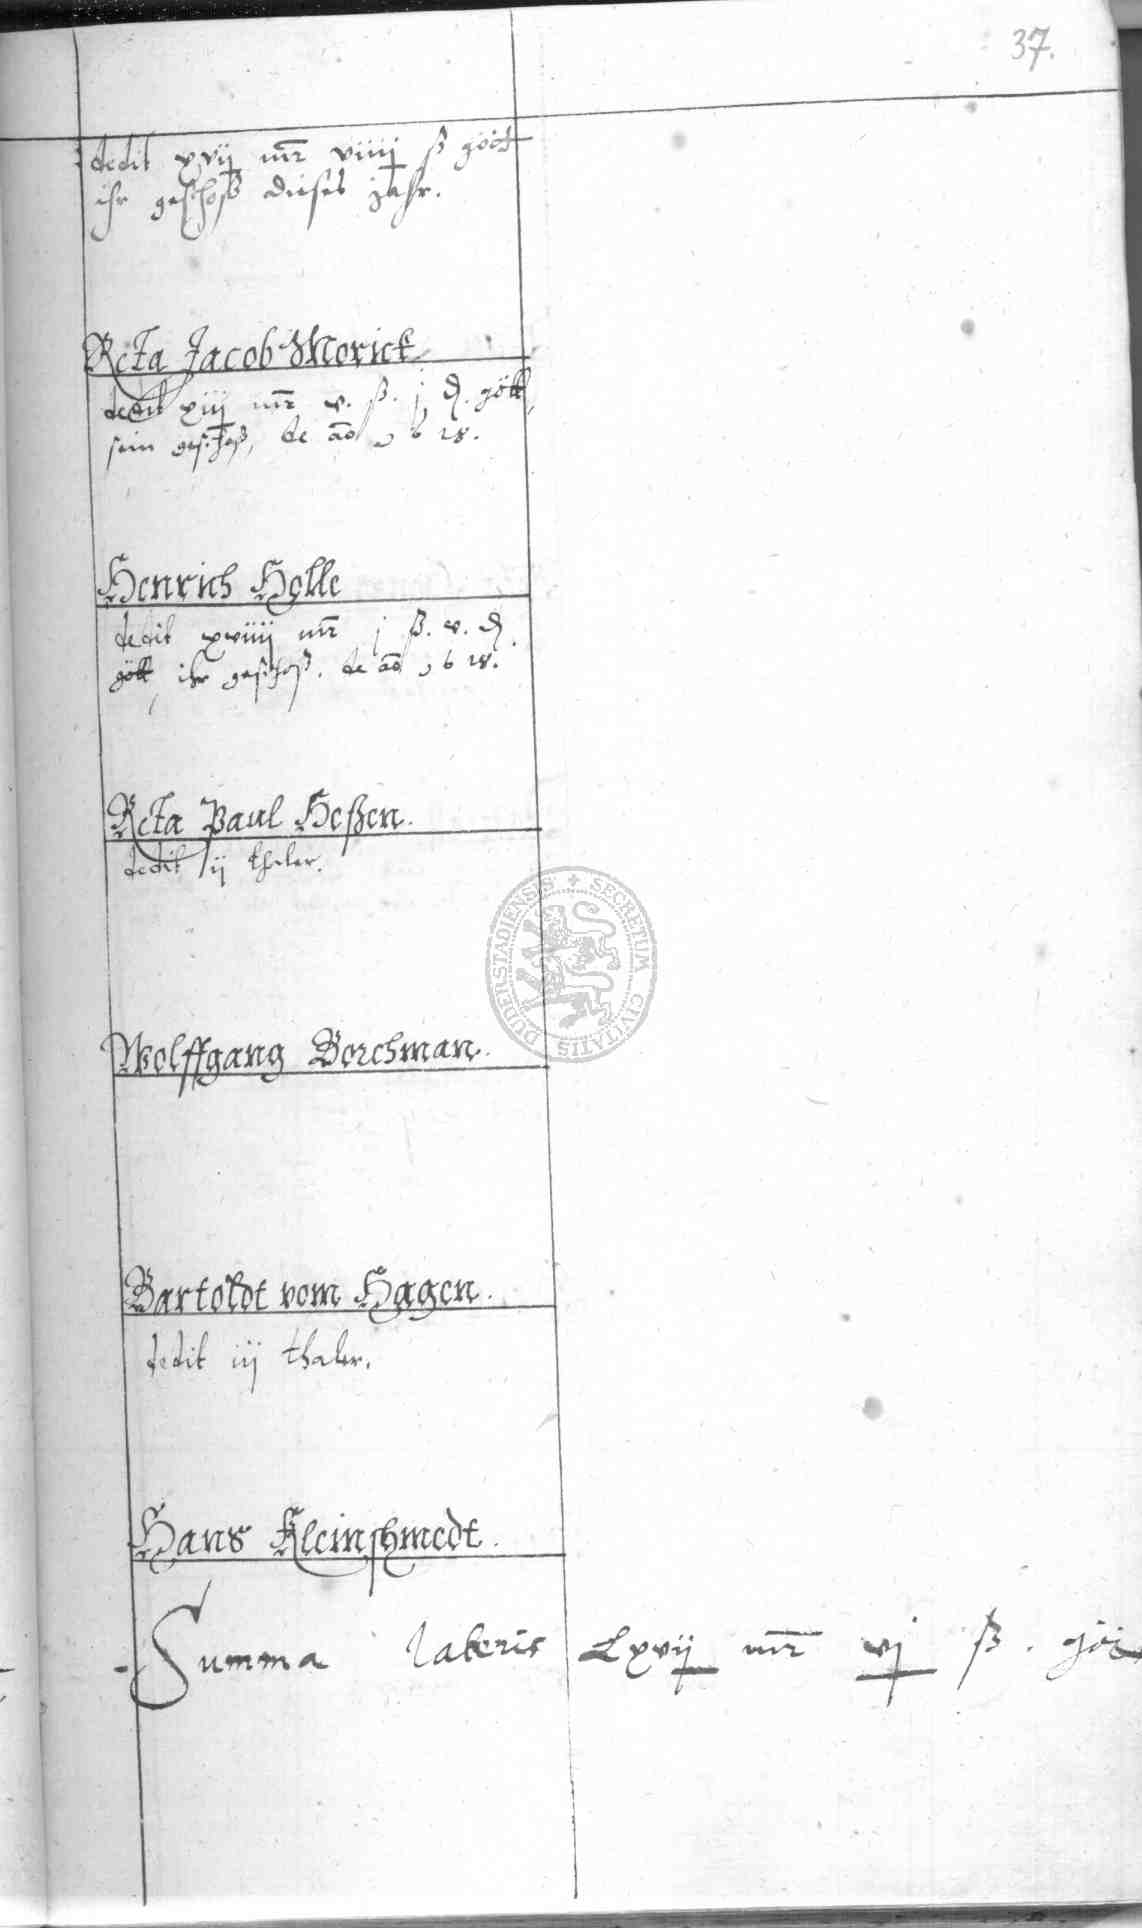 37.
dedit xvij mr viiij ß gött
ihr geschoß dieses jahr.
Rcta Jacob Morick
dedit xiij mr v. ß. j d. gött
sein geschoß, de ao 1618.
Henrich Holle
dedit xviiij mr j ß. v. d
gött ihr geschoß. de ao 1618.
Rcta Paul Heßen.
dedit ij thaler.
SECRETUM CIVITATIS DUDERSTADIENSIS
Wolffgang Borchman.
Bartoldt vom Hagen.
dedit iij thaler.
Hans Kleinschmedt.
Summa lateris Lxvij mr vj ß. göt